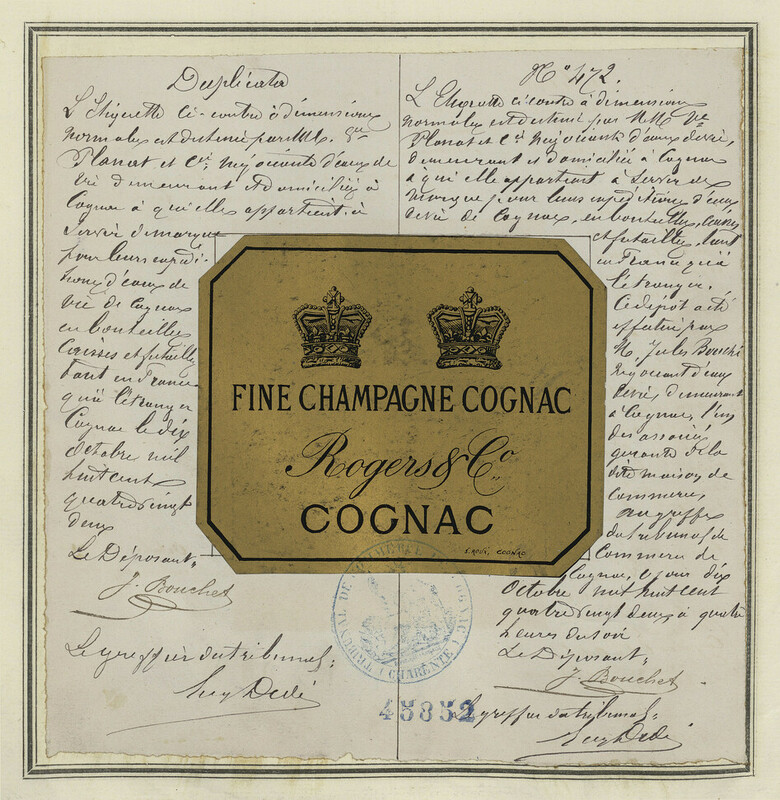 Duplicata
L'Etiquette ci-contre à dimensions
normales est destinée par MM. Vve
Planat et Cie: négociants d'eaux de
vie demeurant et domiciliés à
Cognac à qui elle appartient à
servir de marque
pour leurs expédi-
tions d'eaux de
vie de Cognac
en bouteilles
Caisses et futailles
tant en France
qu'à l'étranger
Cognac le dix
Octobre mil
huit cent
quatre vingt
deux
Le Déposant,
J. Bouchet
Le greffier du tribunal,
No 472.
L'Etiquette ci-contre à dimensions
normales est destinée par MM. Vve
Planat et Cie négociants d'eaux de vie,
demeurant et domiciliés à Cognac
à qui elle appartient à servir de
marque pour leurs expéditions d'eaux
de vie de Cognac, en bouteilles, caisses
et futailles, tant
en France qu'à
l'étranger.
Ce dépôt a été
effectué par
M. Jules Bouchet
négociant d'eaux
de vie, demeurant
à Cognac, l'un
des associés
gérants de la
dite maison de
Commerce,
au greffe
du tribunal de
Commerce de
Cognac, ce jour dix
Octobre mil huit cent
quatre vingt deux à quatre
heures du soir
Le Déposant,
J. Bouchet
Le greffier du tribunal,
FINE CHAMPAGNE COGNAC
Rogers & Co.
COGNAC
COGNAC
TRIBUNAL DE COMMERCE DE COGNAC
CHARENTE
45852